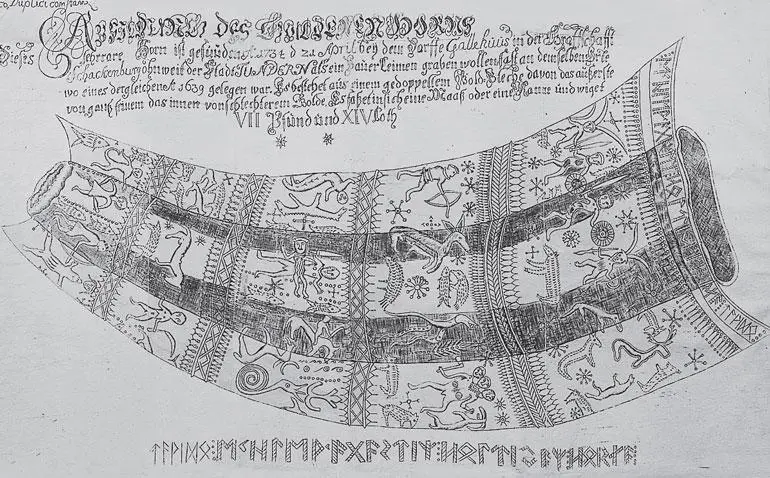 Abbildung des Guldenen Horns
Dieses sehr rare Horn ist gefunden A° 1734 d 21 April bey dem Dorffe Gallehuus in der Graffschafft
Schackenburg ohnweit der Stadt TUNDERN als ein Bauer Leimen graben wollen fast an demselben Orte
wo eines dergleichen A° 1639 gelegen war. Es bestehet aus einem gedoppeltem Gold-Bleche davon das äusserste
von gantz feinem das innen von schlechterem Golde. Es faßet in sich eine Maaß oder eine Kanne und wiget
VII Pfund und XIV Loth
ᛏᚨᚹᛁᛞᛟ:ᛖᚲᚺᛚᛖᚹᚨᚷᚨᛊᛏᛁᛉ:ᚺᛟᛚᛏᛁᛃᚨᛉ:ᚺᛟᚱᚾᚨ